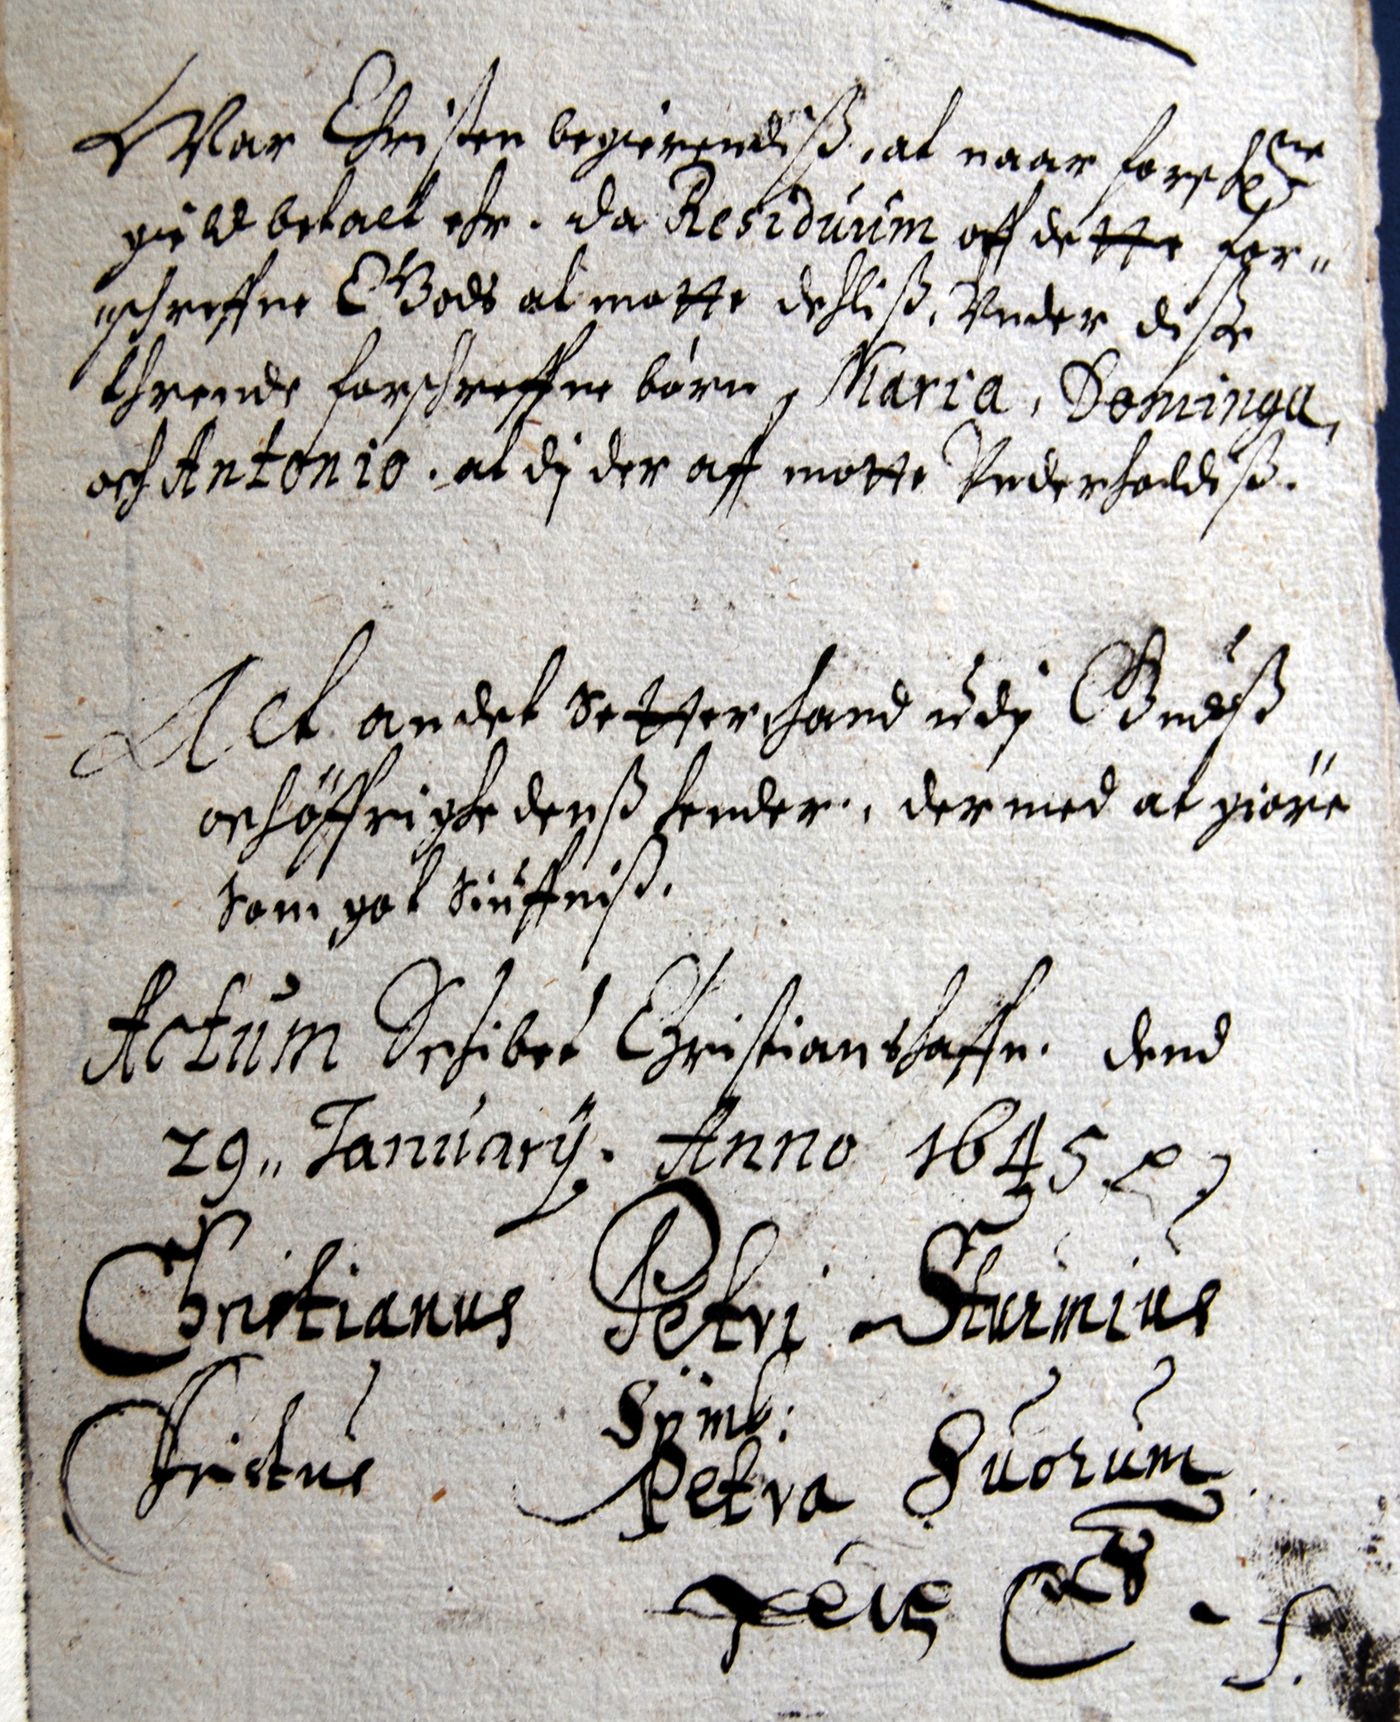 War Christen begierendiß, at naar forschrne
gield betalt ehr. da Residuum off dette for„
„schreffne Gods at motte dehliß, Vnder disße
thrende forschreffne börn, Maria, Dominga,
och Antonio. at dj der aff motte Vnderholdiß.
Alt andet Setter hand udj Gudß
och öffrighedenß hender, dermed at giöre
Som got Siuffniß.
Actum Schibet Christianshaffn. dend
29„ Januarij. Anno 1645.
Christianus Petri Sturmius
Symb:
Christus Petra Suorum